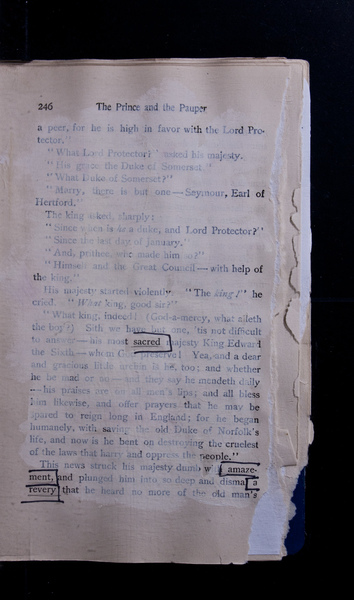 246 The Prince and the Pauper
a peer, for he is high in favor with the Lord Pro-
tector."
"What Lord Protector?" asked his majesty.
"His grace the Duke of Somerset."
"What Duke of Somerset?"
"Marry, there is but one—Seymour, Earl of
Hertford."
The king asked, sharply:
"Since when is he a duke, and Lord Protector?"
"Since the last day of January."
"And, prithee, who made him so?"
"Himself and the Great Council—with help of
the king."
His majesty started violently. "The king!" he
cried. "What king, good sir?"
"What king, indeed! (God-a-mercy, what aileth
the boy?) Sith we have but one, 'tis not difficult
to answer—his most sacred majesty King Edward
the Sixth—whom God preserve! Yea, and a dear
and gracious little urchin is he, too; and whether
he be mad or no—and they say he mendeth daily
—his praises are on all men's lips; and all bless
him likewise, and offer prayers that he may be
spared to reign long in England; for he began
humanely, with saving the old Duke of Norfolk's
life, and now is he bent on destroying the cruelest
of the laws that harry and oppress the people."
This news struck his majesty dumb with amaze-
ment, and plunged him into so deep and dismal a
revery that he heard no more of the old man's